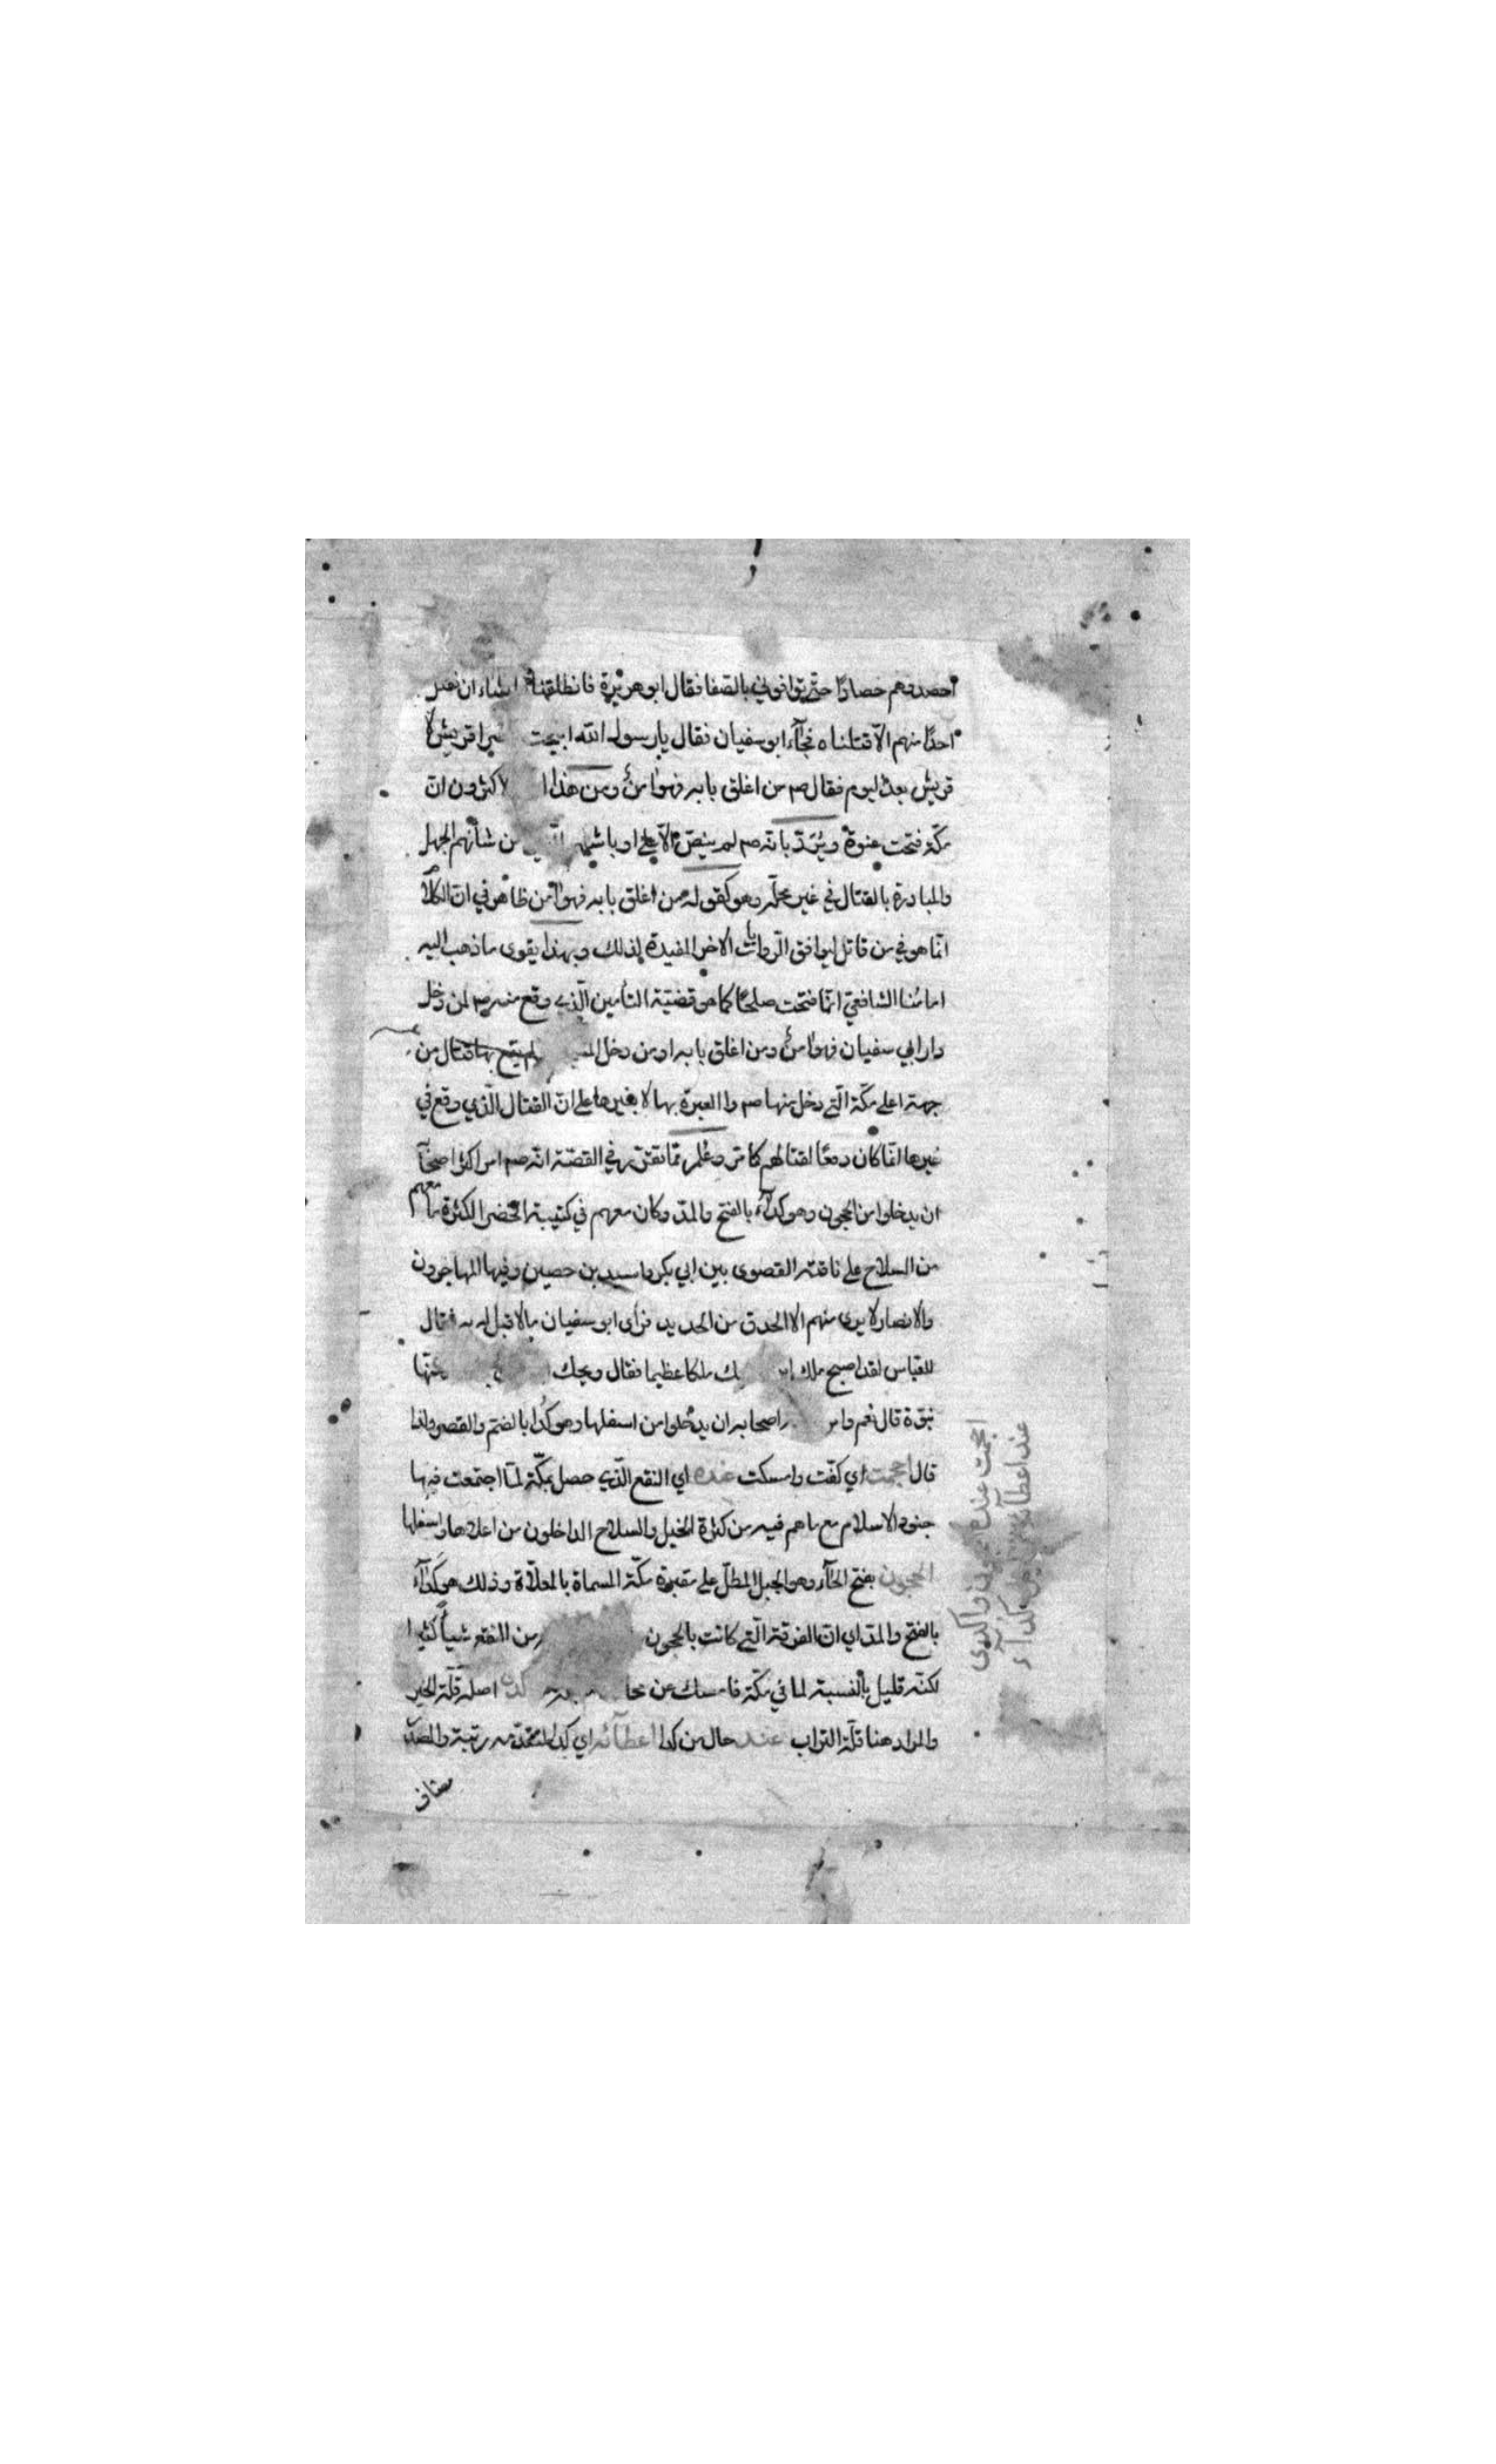 احصدوهم حصادا حتى توافوني بالصفا فقال ابو هريرة فانطلقنا نشاء ان نقتل
احدا منهم الا قتلناه فجاء ابو سفيان فقال يا رسول الله ابيحت قريش لا
قريش بعد اليوم فقال صم من اغلق بابه فهو امن ومن هذا الاكثرون ان
مكة فتحت عنوة ويرد بانه صم لم ينص الا على اوباشهم من شأنهم الجهل
والمبادرة بالقتال في غير محله وهو كقوله من اغلق بابه فهو امن ظاهر في ان الكلام
انما هو في من قاتل ليوافق الروايات الاخر المفيدة لذلك وبهذا يقوى ما ذهب اليه
امامنا الشافعي انما فتحت صلحا كما هو قضية التأمين الذي وقع منه صم لمن دخل
دار ابي سفيان فهو امن ومن اغلق بابه او من دخل ولم يقع بها قتال من
جهة اعلى مكة التي دخل منها صم والعبرة بها لا بغيرها على ان القتال الذي وقع في
غيرها انما كان دفعا لقتالهم كما مر وعلم مما تقرر في القصة انه صم امر اكثر اصحابه
ان يدخلوا من الحجون وهو كداء بالفتح والمد وكان معهم في كتيبته الخضرا لكثرة ما معهم
من السلاح على ناقته القصوى بين ابي بكر واسيد بن حصين وفيها المهاجرون
والانصار لا يرى منهم الا الحدق من الحديد فراى ابو سفيان ما لا قبل له به فقال
للعباس لقد اصبح ملك ملكا عظيما فقال ويحك
نبوة قال نعم وامر اصحابه ان يدخلوا من اسفلها وهو كدا بالضم والقصر ولذا
قال احجمت اي كفت وامسكت عنده اي النقع الذي حصل بمكة لما اجتمعت فيها
جنود الاسلام مع ما هم فيه من كثرة الخيل والسلاح الداخلون من اعلاها واسفلها
الحجون بفتح الحاء وهو الجبل المطل على مقبرة مكة المسماة بالمعلاة وذلك هو كداء
بالفتح والمد اي ان الفرقة التي كانت بالحجون من النقع شيأ كثيرا
لكنه قليل بالنسبة لما في مكة فامسك عن اصله قلة الخير
والمراد هنا قلة التراب عند حال من كدا اعطائه اي كدا المتقدمه رتبة والمصدر
مضاف
احجمت عنده الحجون واكدى
عند اعطائه كداء